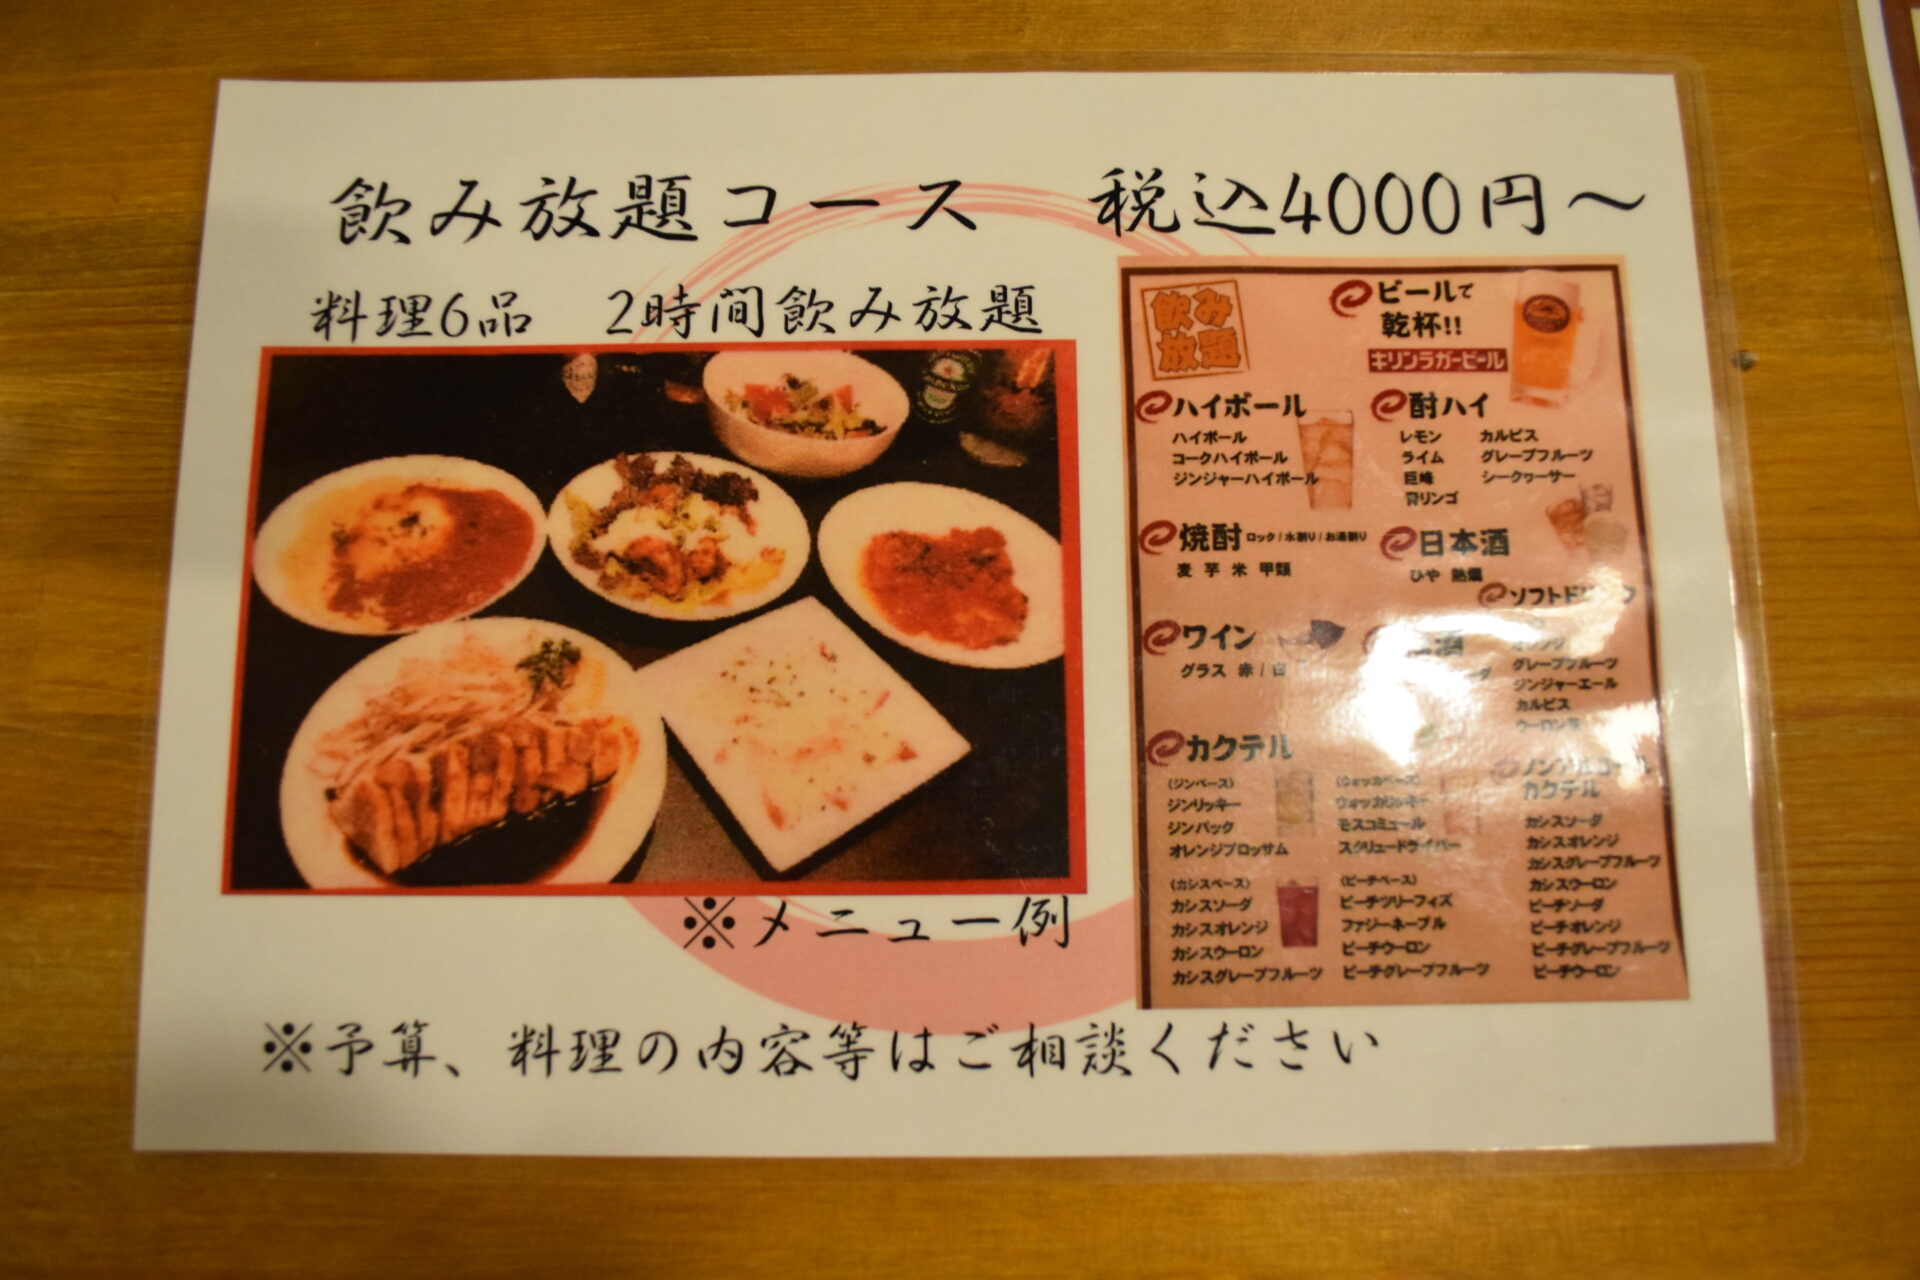 飲み放題コース　税込4000円～
料理6品　2時間飲み放題
※メニュー例
飲み
放題
ビールで
乾杯!!
キリンラガービール
ハイボール
ハイボール
コークハイボール
ジンジャーハイボール
酎ハイ
レモン　カルピス
ライム　グレープフルーツ
巨峰　シークヮーサー
青リンゴ
焼酎 ロック/水割り/お湯割り
麦 芋 米 甲類
日本酒
ひや 熱燗
ワイン
グラス 赤/白
ソフトドリンク
オレンジ
グレープフルーツ
ジンジャーエール
カルピス
ウーロン茶
カクテル
(ジンベース)
ジンリッキー
ジンバック
オレンジブロッサム
(ウォッカベース)
ウォッカリッキー
モスコミュール
スクリュードライバー
(カシスベース)
カシスソーダ
カシスオレンジ
カシスウーロン
カシスグレープフルーツ
(ピーチベース)
ピーチツリーフィズ
ファジーネーブル
ピーチウーロン
ピーチグレープフルーツ
ノンアルコール
カクテル
カシスソーダ
カシスオレンジ
カシスグレープフルーツ
カシスウーロン
ピーチソーダ
ピーチオレンジ
ピーチグレープフルーツ
ピーチウーロン
※予算、料理の内容等はご相談ください